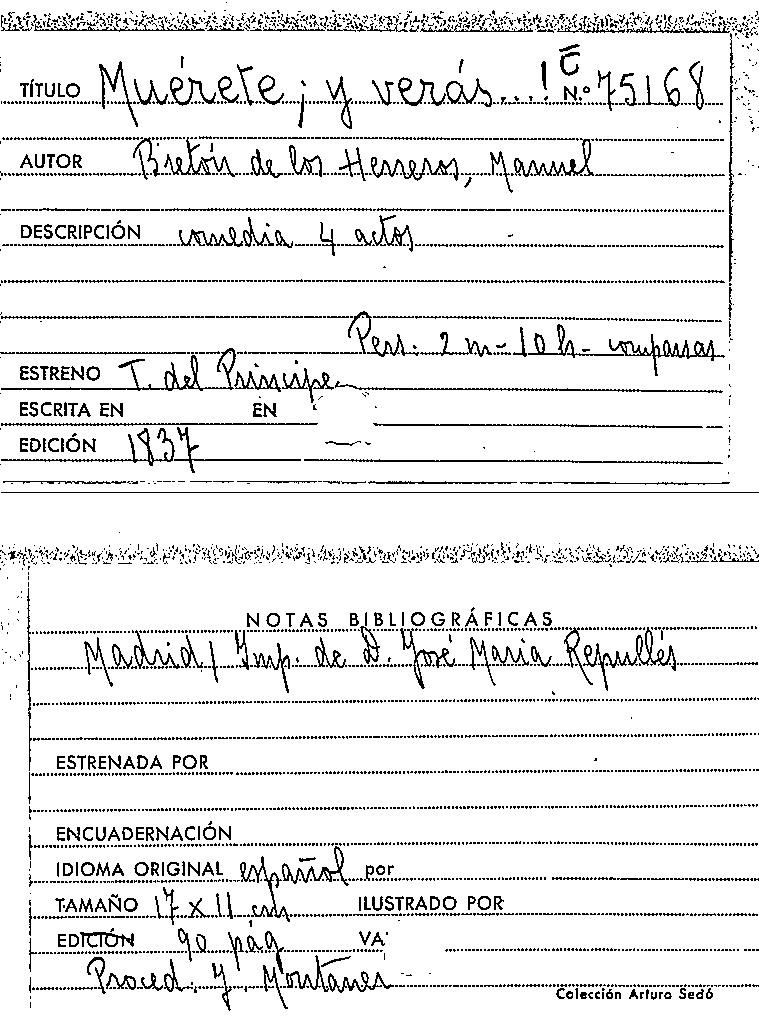 TÍTULO Muérete ¡ y verás...! C̄ N.º 75168
AUTOR Bretón de los Herreros, Manuel
DESCRIPCIÓN comedia 4 actos
Pers. 2 m - 10 h - comparsas
ESTRENO T. del Príncipe
ESCRITA EN EN
EDICIÓN 1837
NOTAS BIBLIOGRÁFICAS
Madrid / Imp. de D. José Maria Repullés
ESTRENADA POR
ENCUADERNACIÓN
IDIOMA ORIGINAL español por
TAMAÑO 17 x 11 cm ILUSTRADO POR
EDICIÓN 90 pág VA
Proced. Y. Montaner
Colección Arturo Sedó